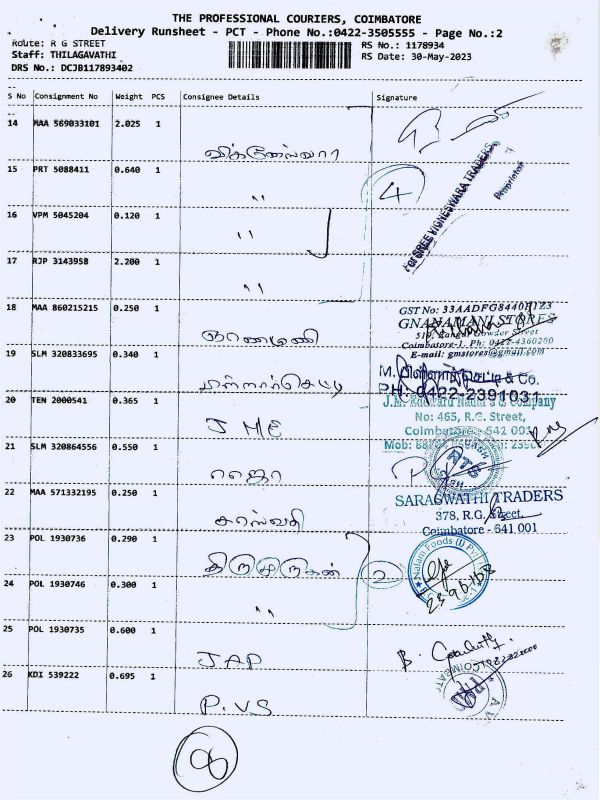 THE PROFESSIONAL COURIERS, COIMBATORE
Delivery Runsheet - PCT - Phone No.:0422-3505555 - Page No.:2
Route: R G STREET
RS No.: 1178934
Staff: THILAGAVATHI
RS Date: 30-May-2023
DRS No.: DCJB117893402
S No Consignment No Weight PCS Consignee Details Signature
14 MAA 569033101 2.025 1
விக்னேஸ்வரா
15 PRT 5088411 0.640 1
4
For SREE VIGNESWARA TRADERS
Proprietor
"
16 VPM 5045204 0.120 1
"
17 RJP 3143958 2.200 1
"
18 MAA 860215215 0.250 1
ஞானமணி
GST No: 33AADFG8440H1Z3
GNANAMANI STORES
Street
Coimbatore-1. Ph: 0422-4360290
E-mail: gmstores@gmail.com
19 SLM 320833695 0.340 1
மின்னார்செட்டி
M. & Co.
PH: 0422-2391031
20 TEM 2000541 0.365 1
JME
J.M. Company
No: 465, R.G. Street,
Coimbatore - 641 001
Mob:
21 SLM 320864556 0.550 1
ராஜா
22 MAA 571332195 0.250 1
சரஸ்வதி
SARASWATHI TRADERS
378, R.G. Street,
Coimbatore - 641 001
23 POL 1930736 0.290 1
திருமுருகன்
2
Nalam Foods (I) Pvt
24 POL 1930746 0.300 1
"
25 POL 1930735 0.600 1
JAP
26 KDI 539222 0.695 1
P.VS
8